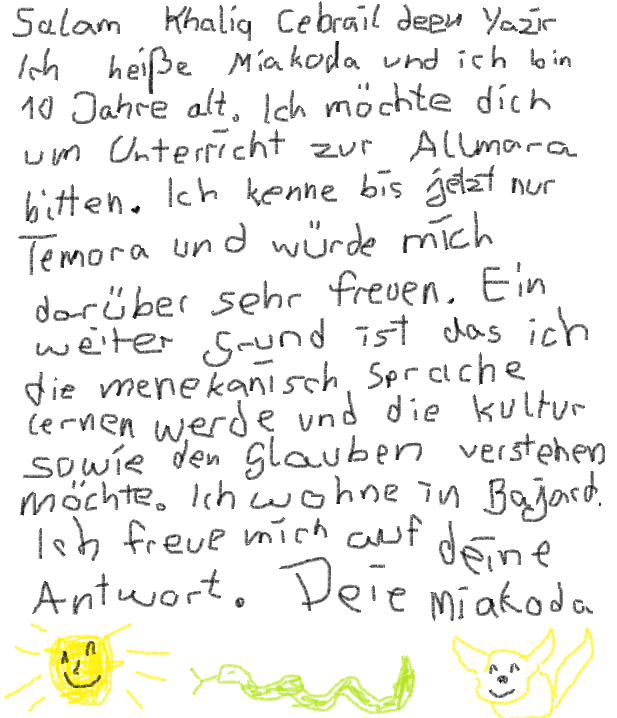 Salam Khaliq Cebrail deen Yazir
Ich heiße Miakoda und ich bin
10 Jahre alt. Ich möchte dich
um Unterricht zur Allmara
bitten. Ich kenne bis jetzt nur
Temora und würde mich
darüber sehr freuen. Ein
weiter grund ist das ich
die menekanisch Sprache
lernen werde und die kultur
sowie den glauben verstehen
möchte. Ich wohne in Bajard.
Ich freue mich auf deine
Antwort. Deie Miakoda